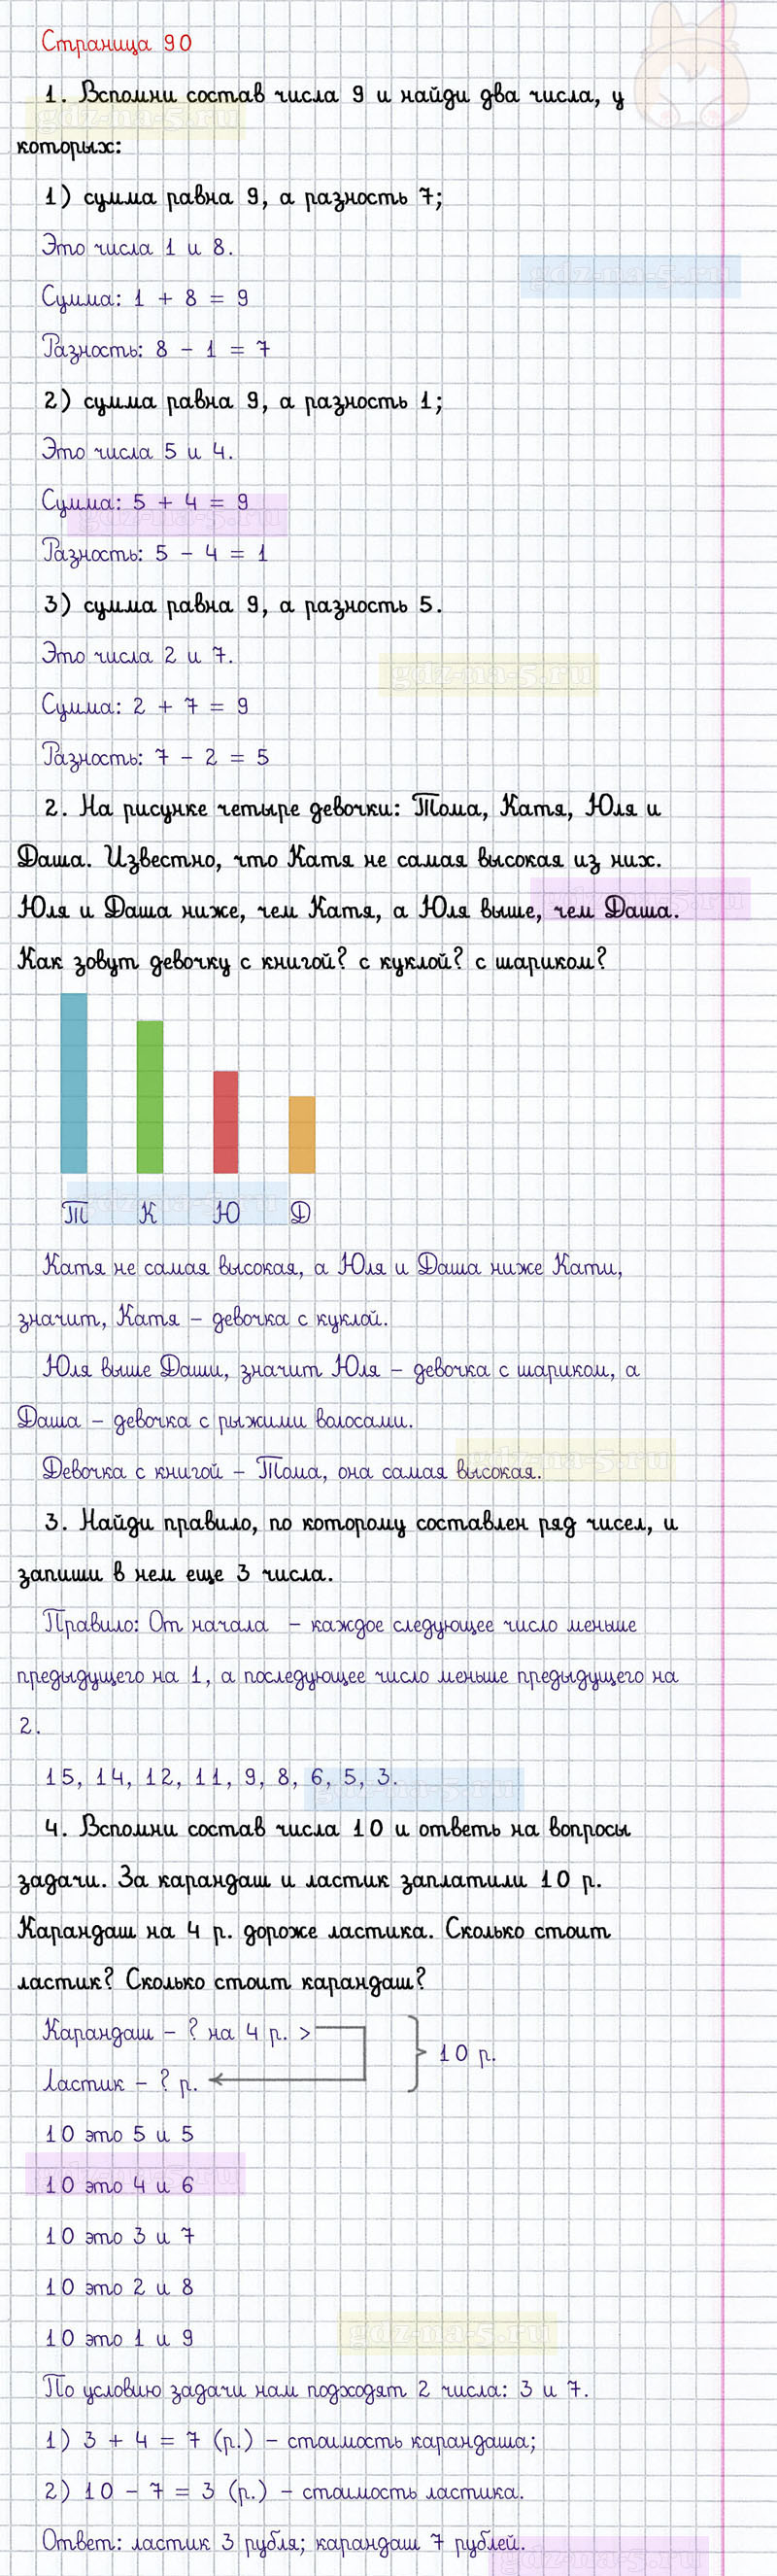 Страница 90
1. Вспомни состав числа 9 и найди два числа, у
gdz-na-5.ru
которых:
1) сумма равна 9, а разность 7;
Это числа 1 и 8.
gdz-na-5.ru
Сумма: 1 + 8 = 9
Разность: 8 - 1 = 7
2) сумма равна 9, а разность 1;
Это числа 5 и 4.
Сумма: 5 + 4 = 9
gdz-na-5.ru
Разность: 5 - 4 = 1
3) сумма равна 9, а разность 5.
Это числа 2 и 7.
gdz-na-5.ru
Сумма: 2 + 7 = 9
Разность: 7 - 2 = 5
2. На рисунке четыре девочки: Тома, Катя, Юля и
Даша. Известно, что Катя не самая высокая из них.
gdz-na-5.ru
Юля и Даша ниже, чем Катя, а Юля выше, чем Даша.
Как зовут девочку с книгой? с куклой? с шариком?
gdz-na-5.ru
Т К Ю Д
Катя не самая высокая, а Юля и Даша ниже Кати,
значит, Катя – девочка с куклой.
Юля выше Даши, значит Юля – девочка с шариком, а
Даша – девочка с рыжими волосами.
gdz-na-5.ru
Девочка с книгой – Тома, она самая высокая.
3. Найди правило, по которому составлен ряд чисел, и
запиши в нем еще 3 числа.
Правило: От начала – каждое следующее число меньше
предыдущего на 1, а последующее число меньше предыдущего на
2.
15, 14, 12, 11, 9, 8, 6, 5, 3.
gdz-na-5.ru
4. Вспомни состав числа 10 и ответь на вопросы
задачи. За карандаш и ластик заплатили 10 р.
Карандаш на 4 р. дороже ластика. Сколько стоит
ластик? Сколько стоит карандаш?
Карандаш – ? на 4 р. >
10 р.
Ластик – ? р.
10 это 5 и 5
gdz-na-5.ru
10 это 4 и 6
10 это 3 и 7
10 это 2 и 8
10 это 1 и 9
gdz-na-5.ru
По условию задачи нам подходят 2 числа: 3 и 7.
1) 3 + 4 = 7 (р.) – стоимость карандаша;
2) 10 - 7 = 3 (р.) – стоимость ластика.
Ответ: ластик 3 рубля; карандаш 7 рублей.
gdz-na-5.ru